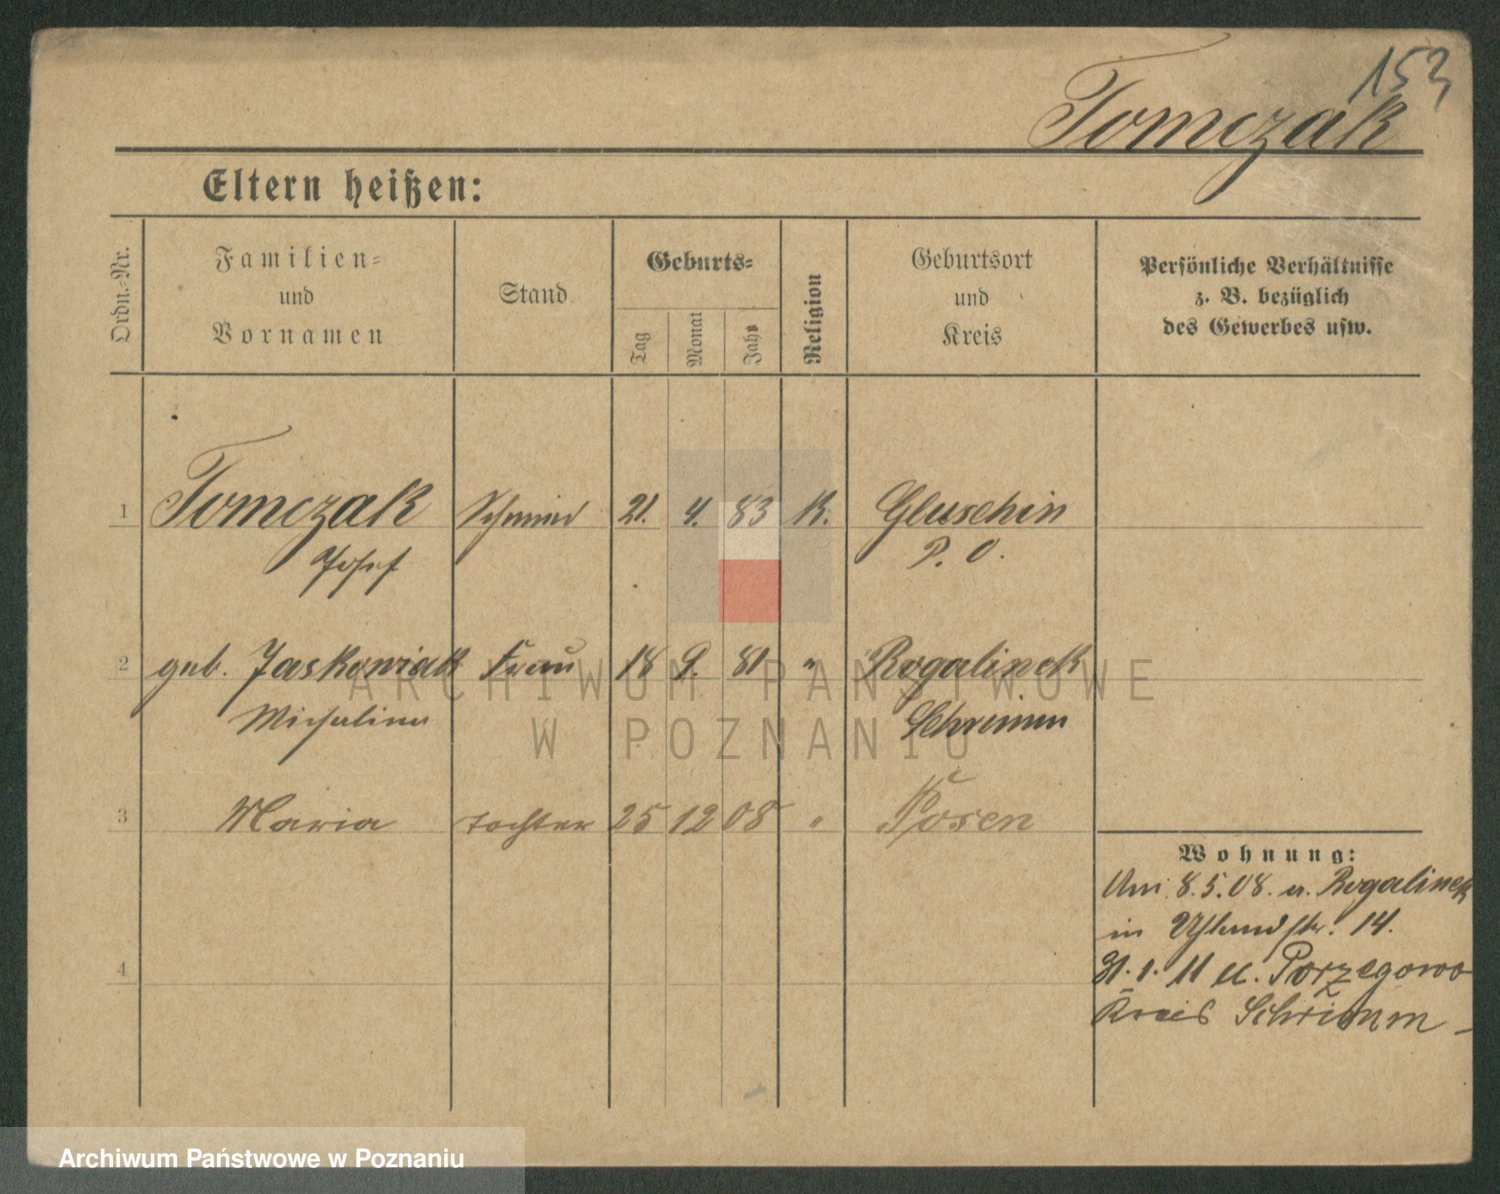 153
Tomczak
Eltern heißen:
Ordn.-Nr.
Familien-
und
Vornamen
Stand
Geburts-
Tag
Monat
Jahr
Religion
Geburtsort
und
Kreis
Persönliche Verhältnisse
z. B. bezüglich
des Gewerbes usw.
1 Tomczak Schmied 21. 4. 83 K. Gluschin
Josef P. O.
2 geb. Jaskowiak Frau 18 9. 81 " Rogalinek
Michalina Schrimm
3 Maria Tochter 25 12 08 " Posen
Wohnung:
Am 8.5.08. a. Rogalinek
in Uhlandstr. 14.
4
31.1.11 u. Porzegowo
Kreis Schrimm
ARCHIWUM PAŃSTWOWE
W POZNANIU
Archiwum Państwowe w Poznaniu